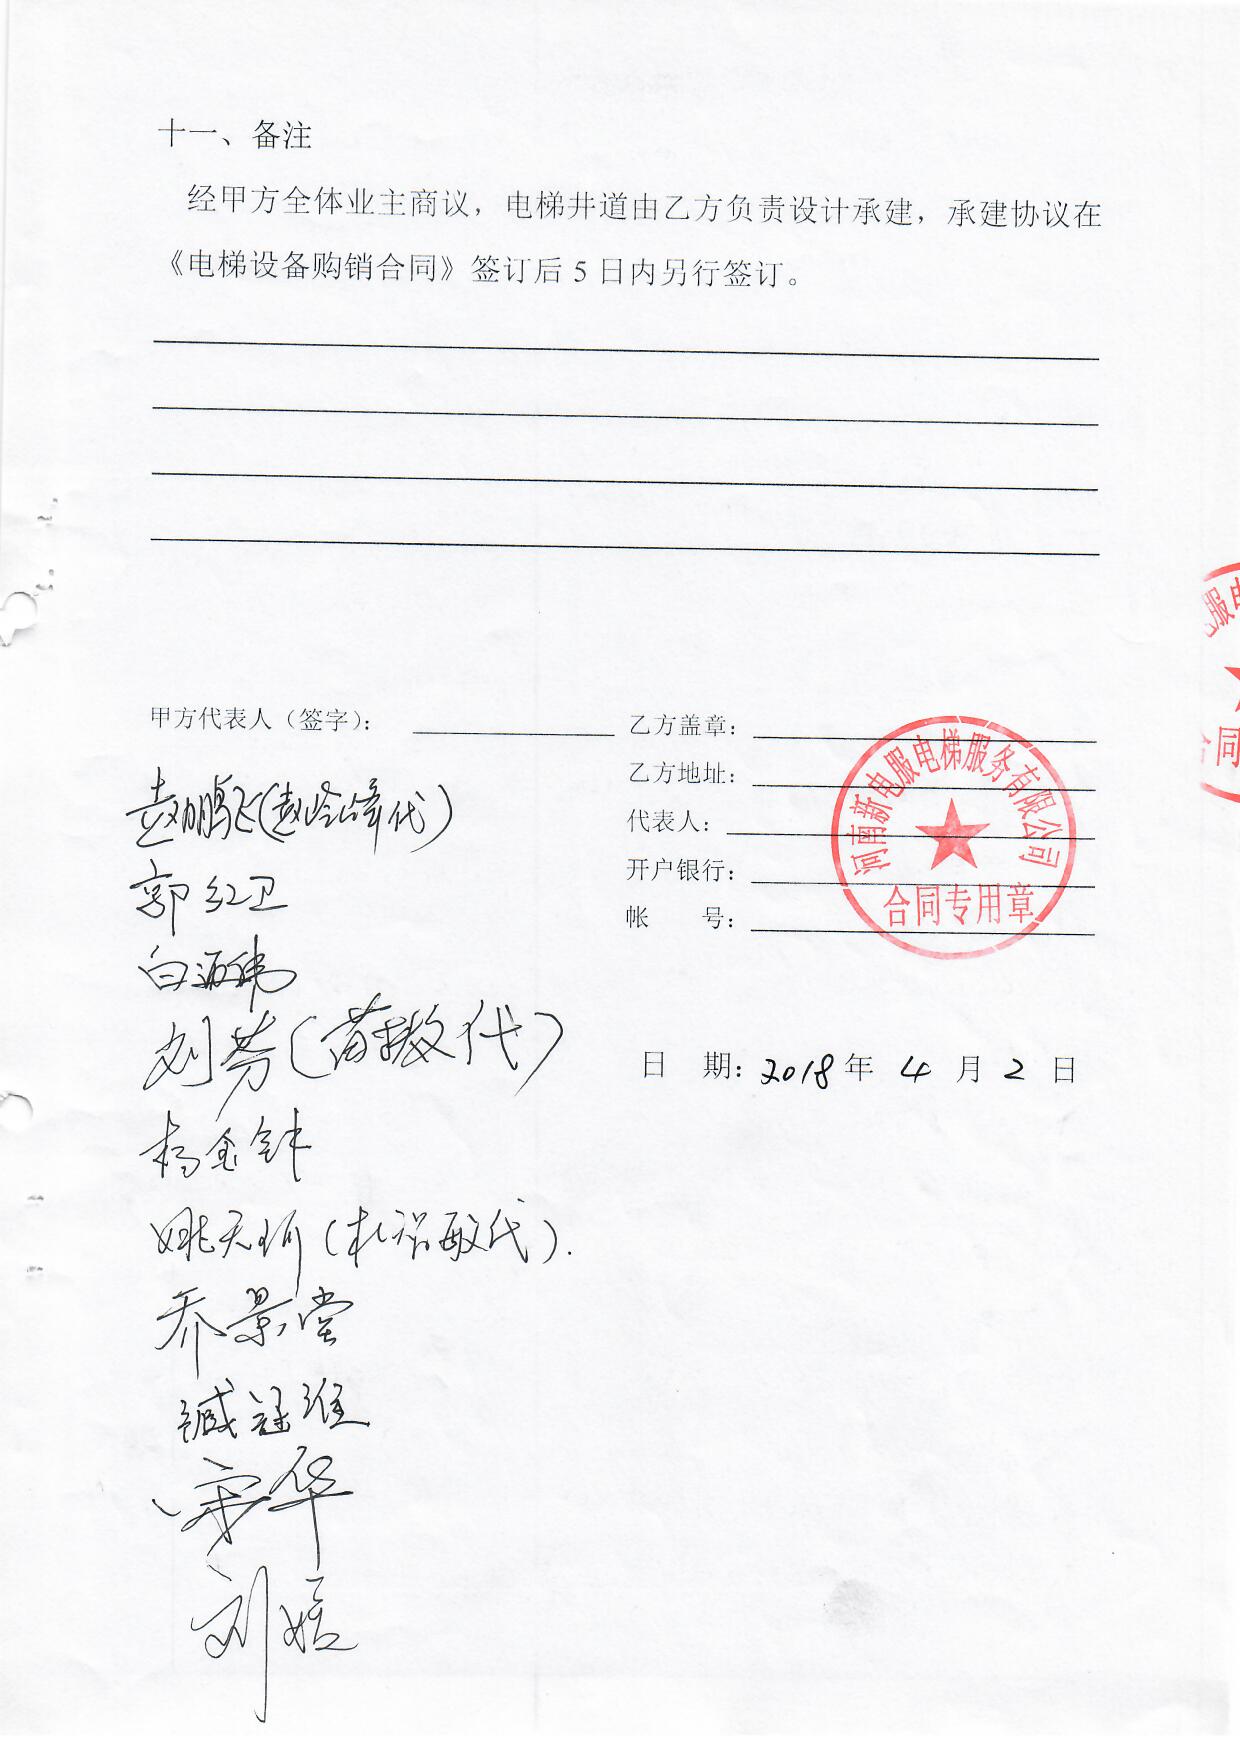 十一、备注
经甲方全体业主商议，电梯井道由乙方负责设计承建，承建协议在
《电梯设备购销合同》签订后 5 日内另行签订。
甲方代表人（签字）：
赵鹏飞(赵岭峰代)
郭红卫
白源伟
刘芳(苗振敏代)
杨金钟
姚天昕(杜福敏代).
乔景堂
臧冠维
宋华
刘婧
乙方盖章：
乙方地址：
代表人：
开户银行：
帐 号：
河南新电服电梯服务有限公司
合同专用章
日 期：2018年 4 月 2 日
服电
合同